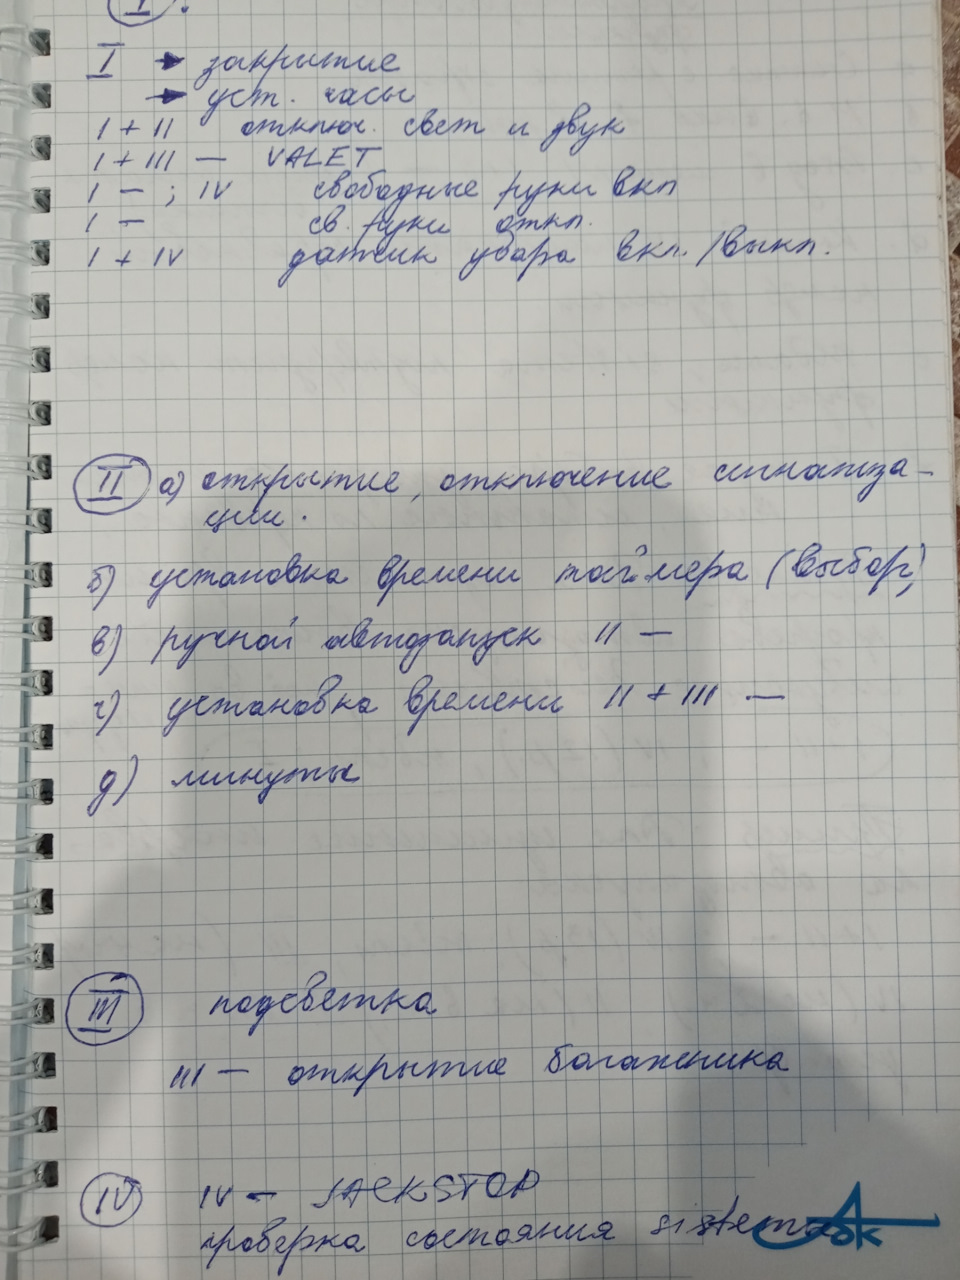 I.
I → закрытие
→ уст. часы
I + II отключ. свет и звук
I + III — VALET
I — ; IV свободные руки вкл
I — св. руки откл.
I + IV датчик удара вкл. / выкл.
II а) открытие, отключение сигнализа-
ции.
б) установка времени таймера (выбор)
в) ручной автозапуск II —
г) установка времени II + III —
д) минуты
III подсветка
III — открытие багажника
IV IV — JACKSTOP
проверка состояния sistema